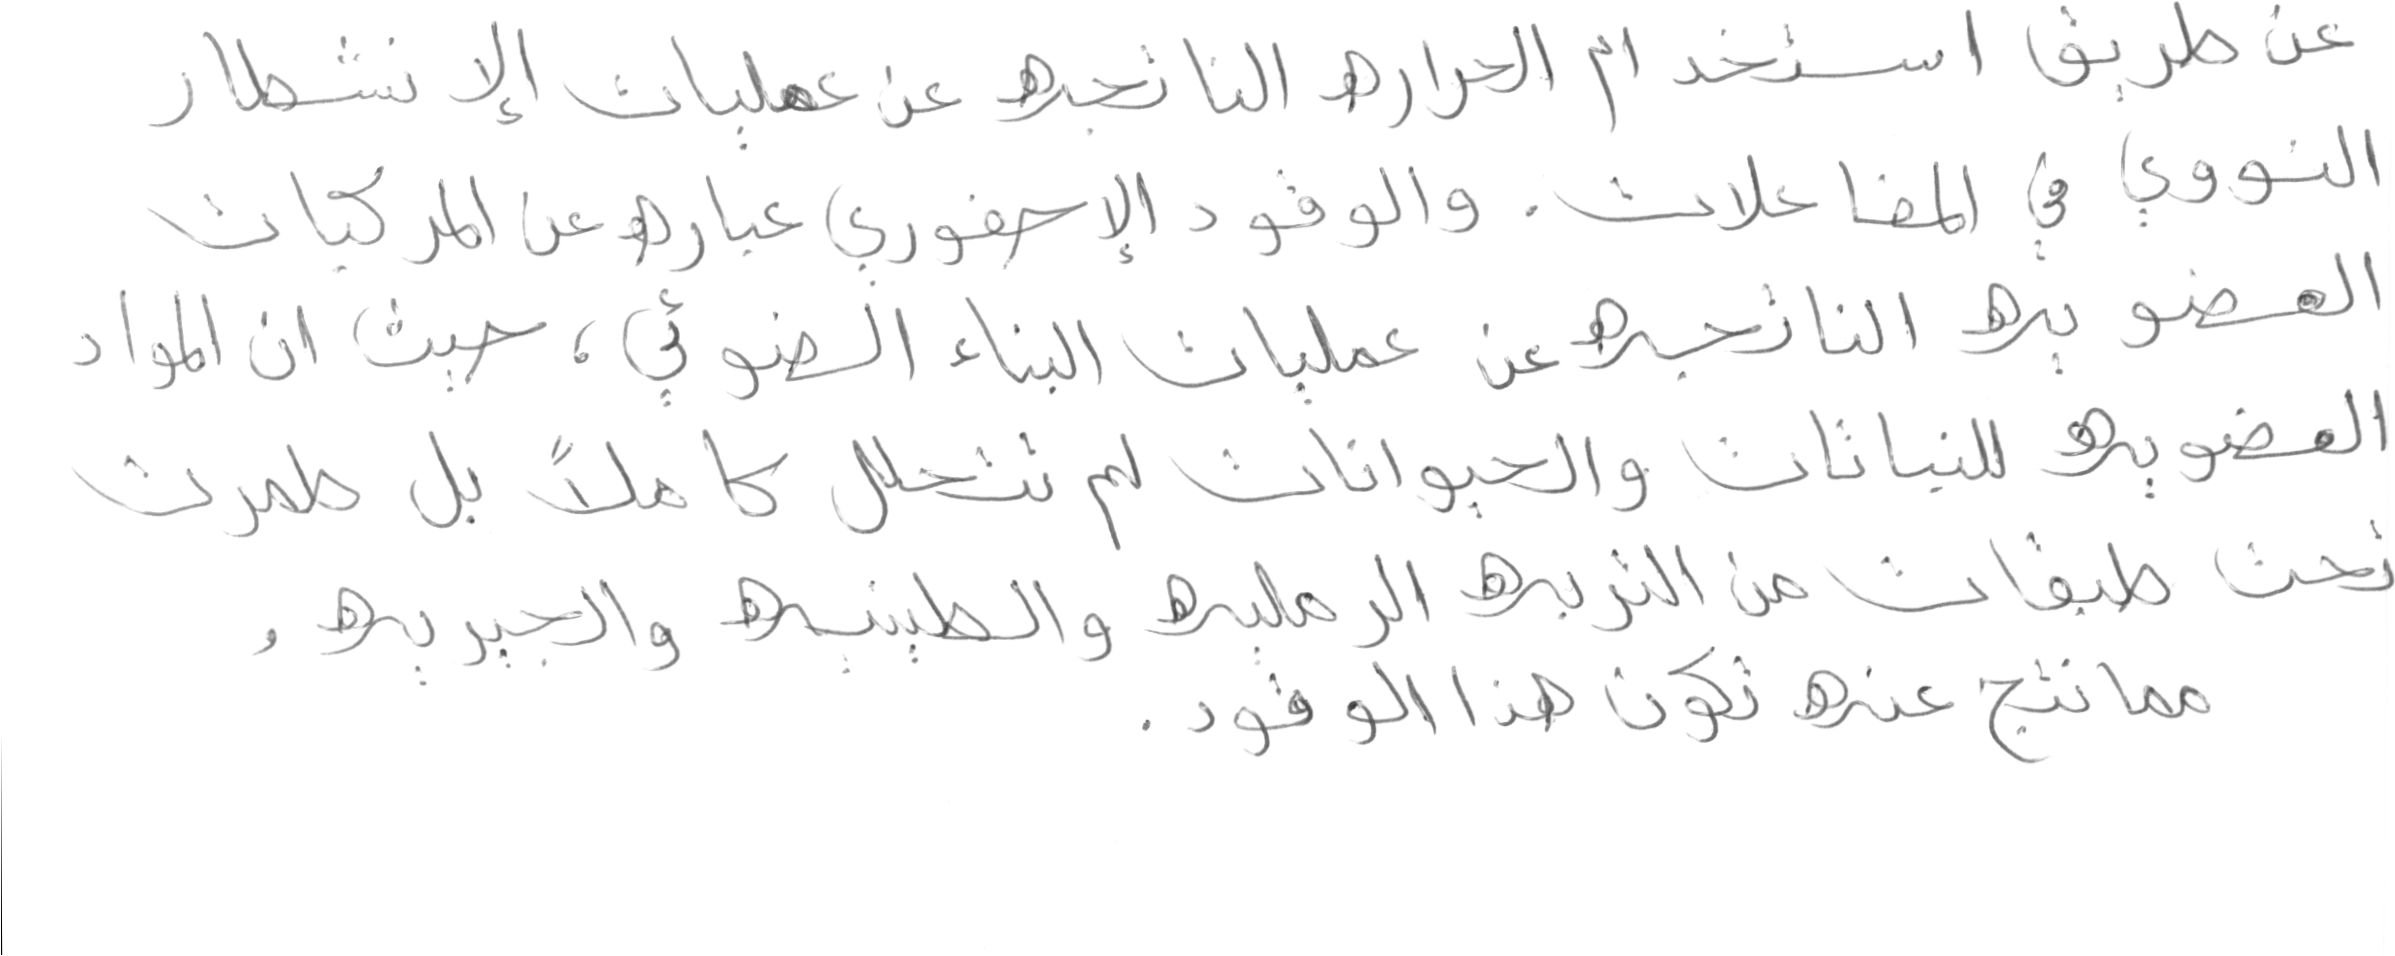 عن طريق استخدام الحراره الناتجه عن عمليات الإنشطار
النووي في المفاعلات. والوقود الإحفوري عباره عن المركبات
العضويه الناتجه عن عمليات البناء الضوئي، حيث ان المواد
العضويه للنباتات والحيوانات لم تتحلل كاملاً بل طمرت
تحت طبقات من التربه الرمليه والطينيه والجيريه,
مما نتج عنه تكون هذا الوقود.